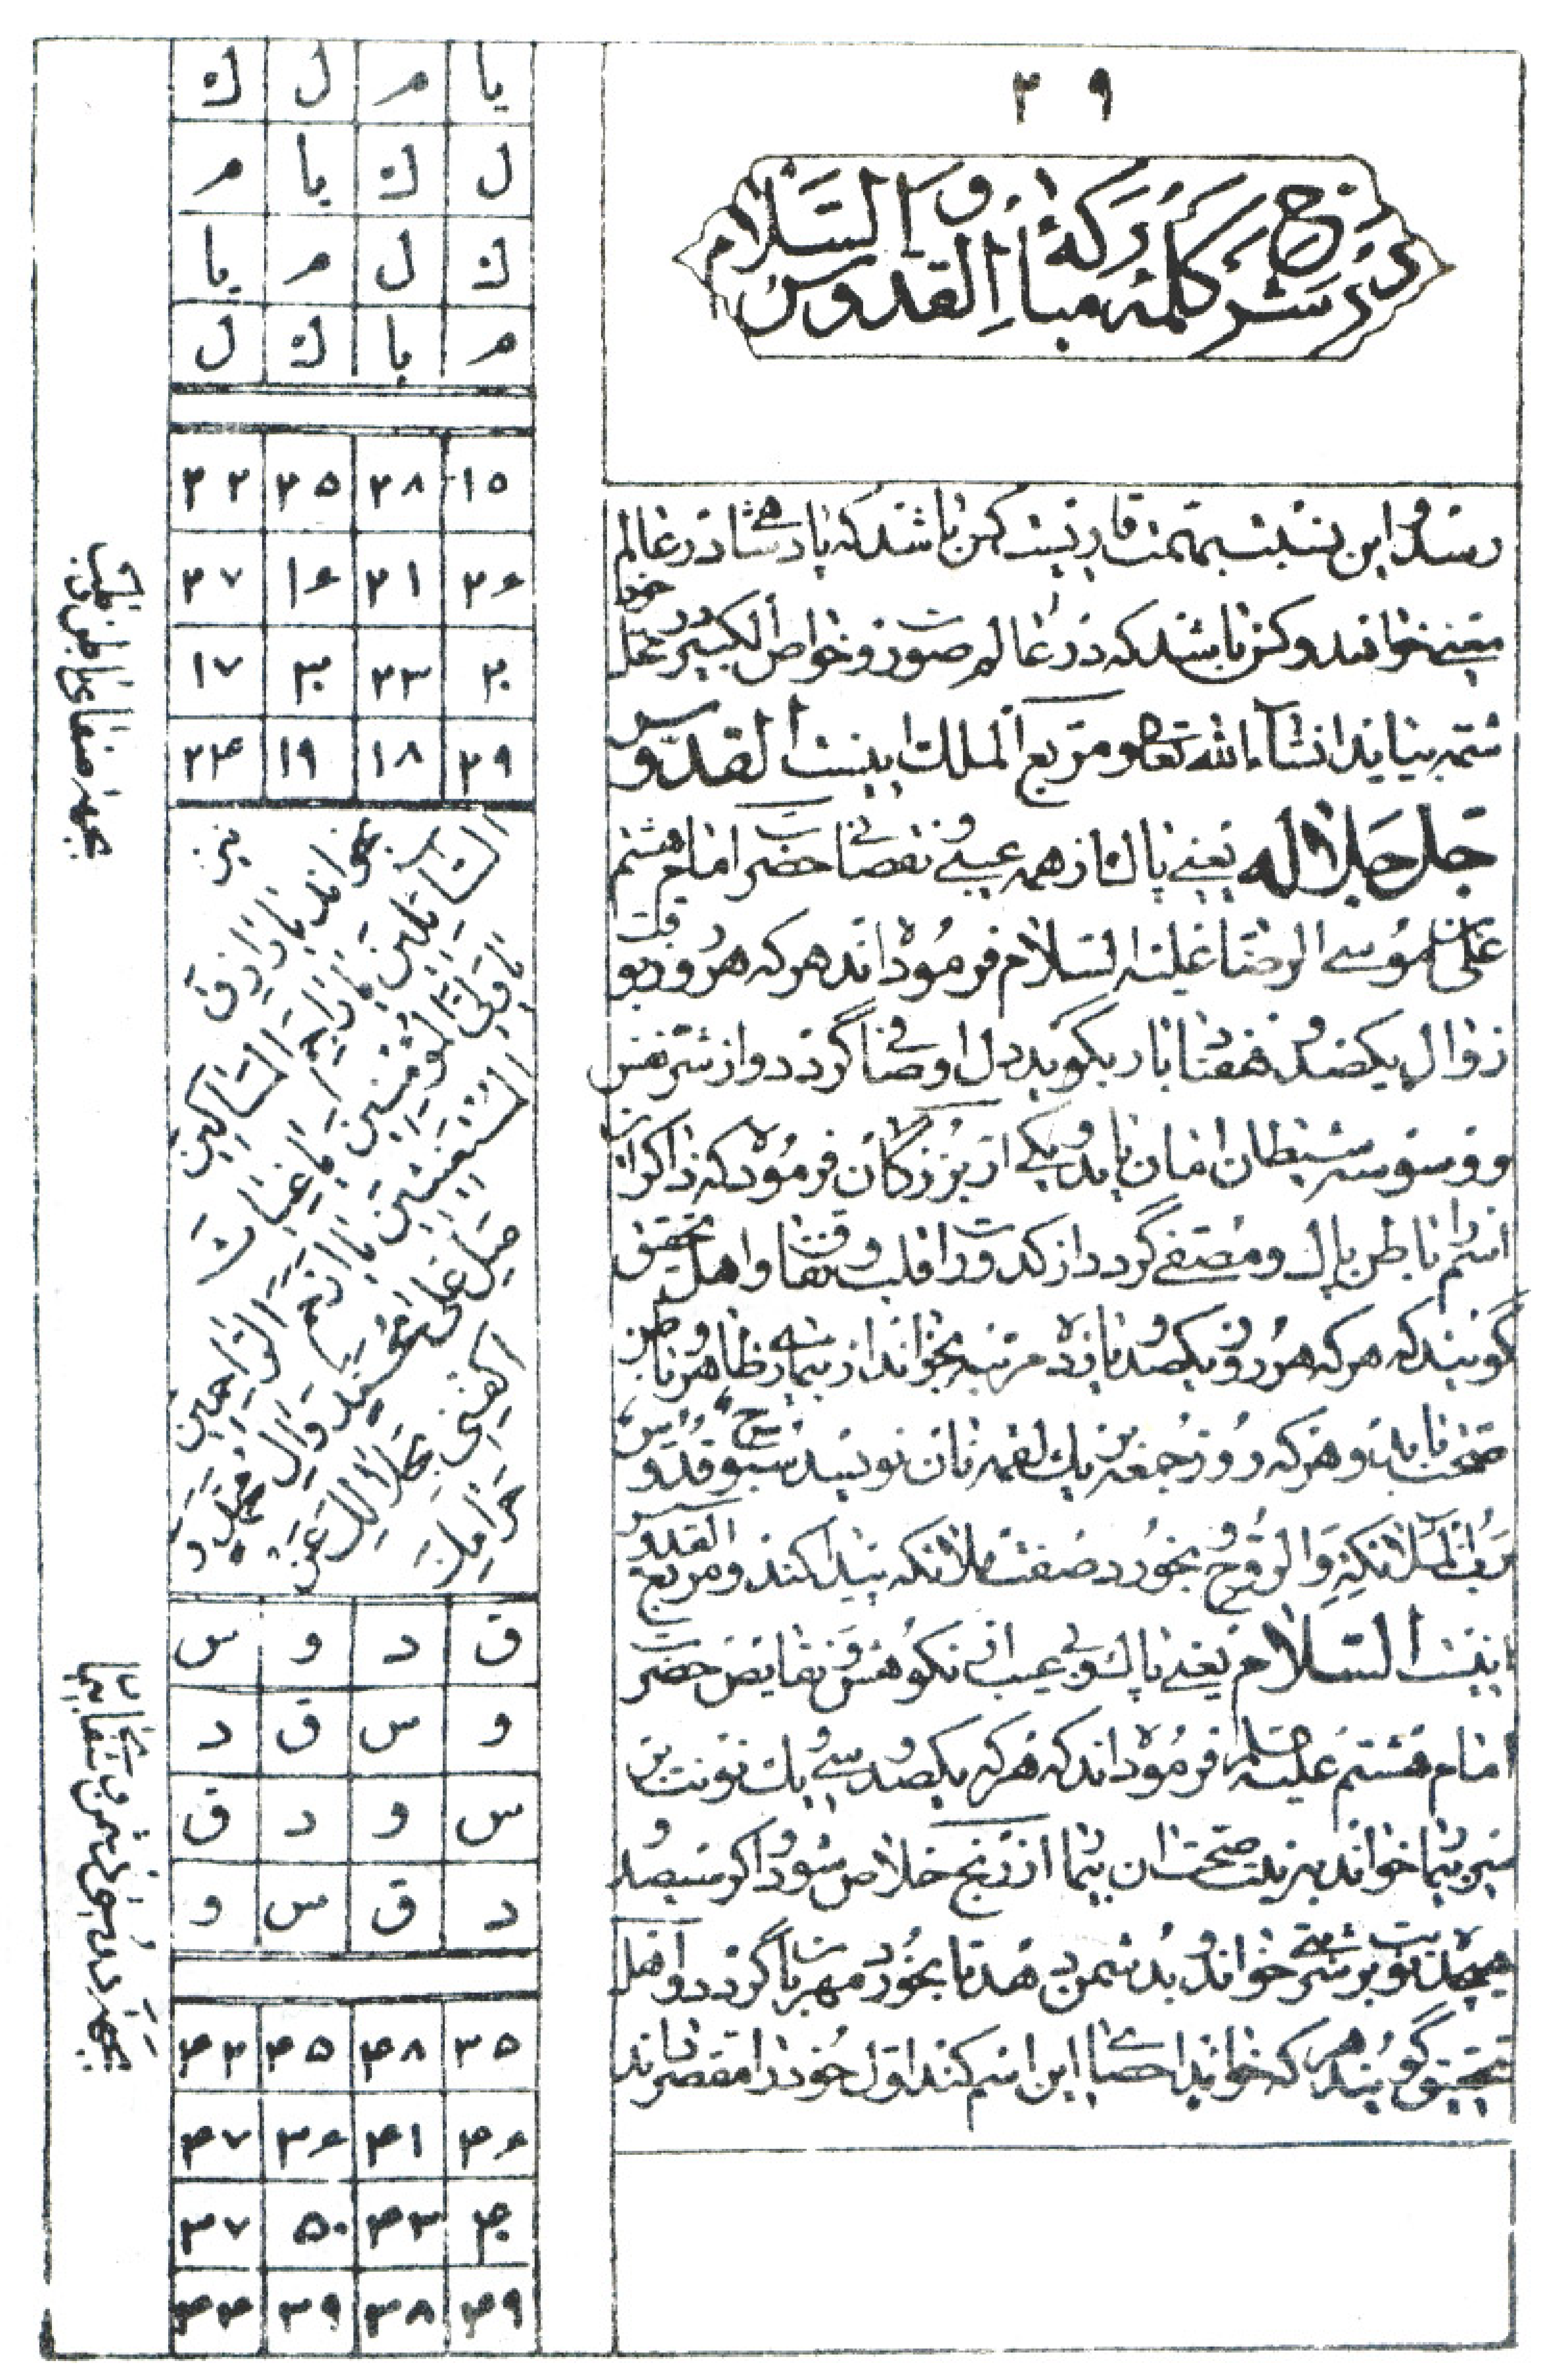 ۲۹
در شرح کلمه مبارکهٔ القدوس و السلام
رسد و این نسبت بهمت قاری است کس باشد که پادشاهی در عالم
معنی خواند و کس باشد که در عالم صورت و خواص الکبیر در محل خود
ثمه بیاید انشاءالله تعالی و مربع الملک اینست القدوس
جل جلاله یعنی پاک از همه عیبی و نقصانی حضرت امام هشتم
علی بن موسی الرضا علیه السلام فرموده‌اند هر که هر روز بوقت
زوال یکصد و هفتاد بار بگوید دل او صافی گردد و از شر نفس
و وسوسه شیطان امان یابد و یکی از بزرگان فرموده که ذاکر این
اسم را باطن پاک و مصفی گردد از کدورت قلب و نفاق و اهل تحقیق
گویند که هر که هر روز یکصد و پانزده مرتبه بخواند از بیماری ظاهر و باطن
صحت یابد و هر که روز جمعه بر یک لقمه نان نویسد سبوح قدوس
رب الملائکة والروح بخورد صفت ملائکه پیدا کند و مربع القدوس
اینست السلام یعنی پاک و بی عیب از نکوهش و نقایص حضرت
امام هشتم علیه السلام فرموده‌اند که هر که یکصد و سی و یک نوبت بر
سر بیمار خواند به نیت صحت آن بیمار از رنج خلاص شود و اگر سیصد و
هیجده نوبت بر شربتی خواند و بدشمن دهد تا بخورد مهربان گردد و اهل
تحقیق گویند هر که خواند احصای این اسم کند اول خود را مقصر داند
یا م ل ك
ل ك یا م
ك ل م یا
م یا ك ل
۱۵ ۲۸ ۲۵ ۲۲
۲۶ ۲۱ ۱۶ ۲۷
۲۰ ۲۳ ۳۰ ۱۷
۲۹ ۱۸ ۱۹ ۲۴
بخواند یا رازق
السائلین یا راحم المساکین
یا ولی المؤمنین یا غیاث
المستغیثین یا ارحم الراحمین
صل علی محمد و آل محمد و
اکفنی بحلالک عن
حرامک
ق د و س
و س ق د
س و د ق
د ق س و
۳۵ ۴۸ ۴۵ ۴۲
۴۶ ۴۱ ۳۶ ۴۷
۴۰ ۴۳ ۵۰ ۳۷
۴۹ ۳۸ ۳۹ ۴۴